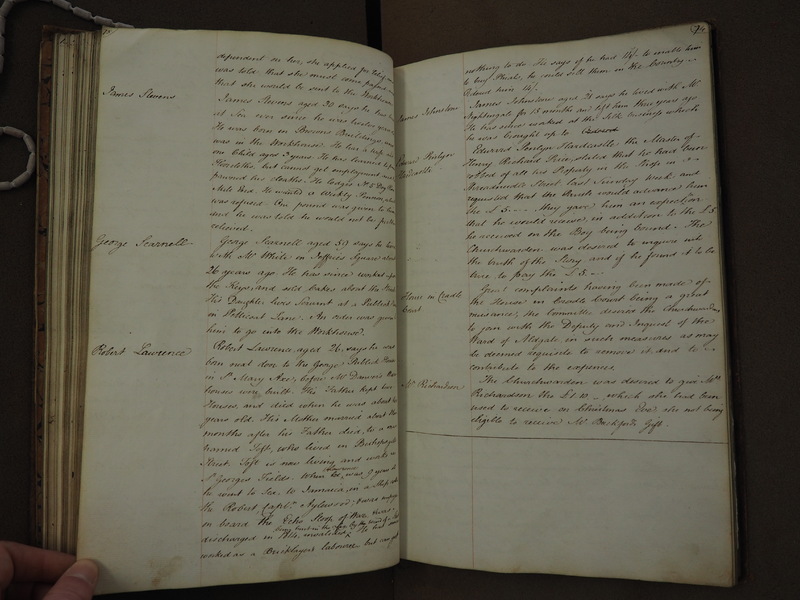 dependent on her, she applied for relief and
was told that she must come
that she would be sent to the Workhouse
James Stevens
James Stevens aged 36 says he has been
at Sea ever since he was twelve years
He was born in Browns Buildings and
was in the Workhouse. He has a wife and
one Child aged 2 years He has
but cannot get employment and
pawned his cloaths. He lodges No. 8 Dog Row
Mile End. He wanted a Weekly Pension, which
was refused. One pound was given to him
and he was told he would not be further
relieved.
George Scarnell
George Scarnell aged 59 says he lived
with Mr White in Jefferies Square about
26 years ago. He has since worked upon
the Keys, and sold Cakes about the Streets
His Daughter lives Servant at a Publick House
in Petticoat Lane. An order was given
him to go into the Workhouse.
Robert Lawrence
Robert Lawrence aged 26 says he was
born next door to the George Publick House
in St Mary Axe, before Mr Dawson's Ware
houses were built. His Father kept two
Houses, and died when he was about two
years old. His Mother married about three
months after his Father died, to a man
named Toft, who lived in Bishopsgate
Street. Toft is now living and works in
St Georges Fields. When Lawrence was 9 years old
he went to Sea, to Jamaica in a Ship called
the Robert Captn. Aylward;
on board the Echo Sloop of War, was
being hurt in the
discharged in 1814, invalided. He has since
worked as a Bricklayers labourer but can get
74
nothing to do He says if he had 14/- to enable him
to buy he could sell them in the Country
Lent him 14/.
James Johnstone
James Johnstone aged 31 says he lived with Mr
Nightingale for 15 months and left him three years ago
He has since worked at the Silk business which
he was brought up to
Edward Penlyn
Hardcastle
Edward Penlyn Hardcastle, the Master of
Henry Richard Price, stated that he had been
robbed of all his Property in his Shop in
Threadneedle Street last Sunday week, and
requested that the Parish would advance him
the £5.—. They gave him an expectation
that he would receive in addition to the £5
he received on the Boy being bound. The
Churchwarden was desired to inquire into
the truth of the Story and if he found it to be
true to pay the £5.—
House in Cradle
Court
Great complaints having been made of
the House in Cradle Court being a great
nuisance, the Committee desired the Churchwarden
to join with the Deputy and Inquest of the
Ward of Aldgate in such measures as may
be deemed requisite to remove it and to
contribute to the expence.
Mrs Richardson
The Churchwarden was desired to give Mrs
Richardson the £1.10.– which she had been
used to receive on Christmas Eve she not being
eligible to receive Mr Buckford's Gift.